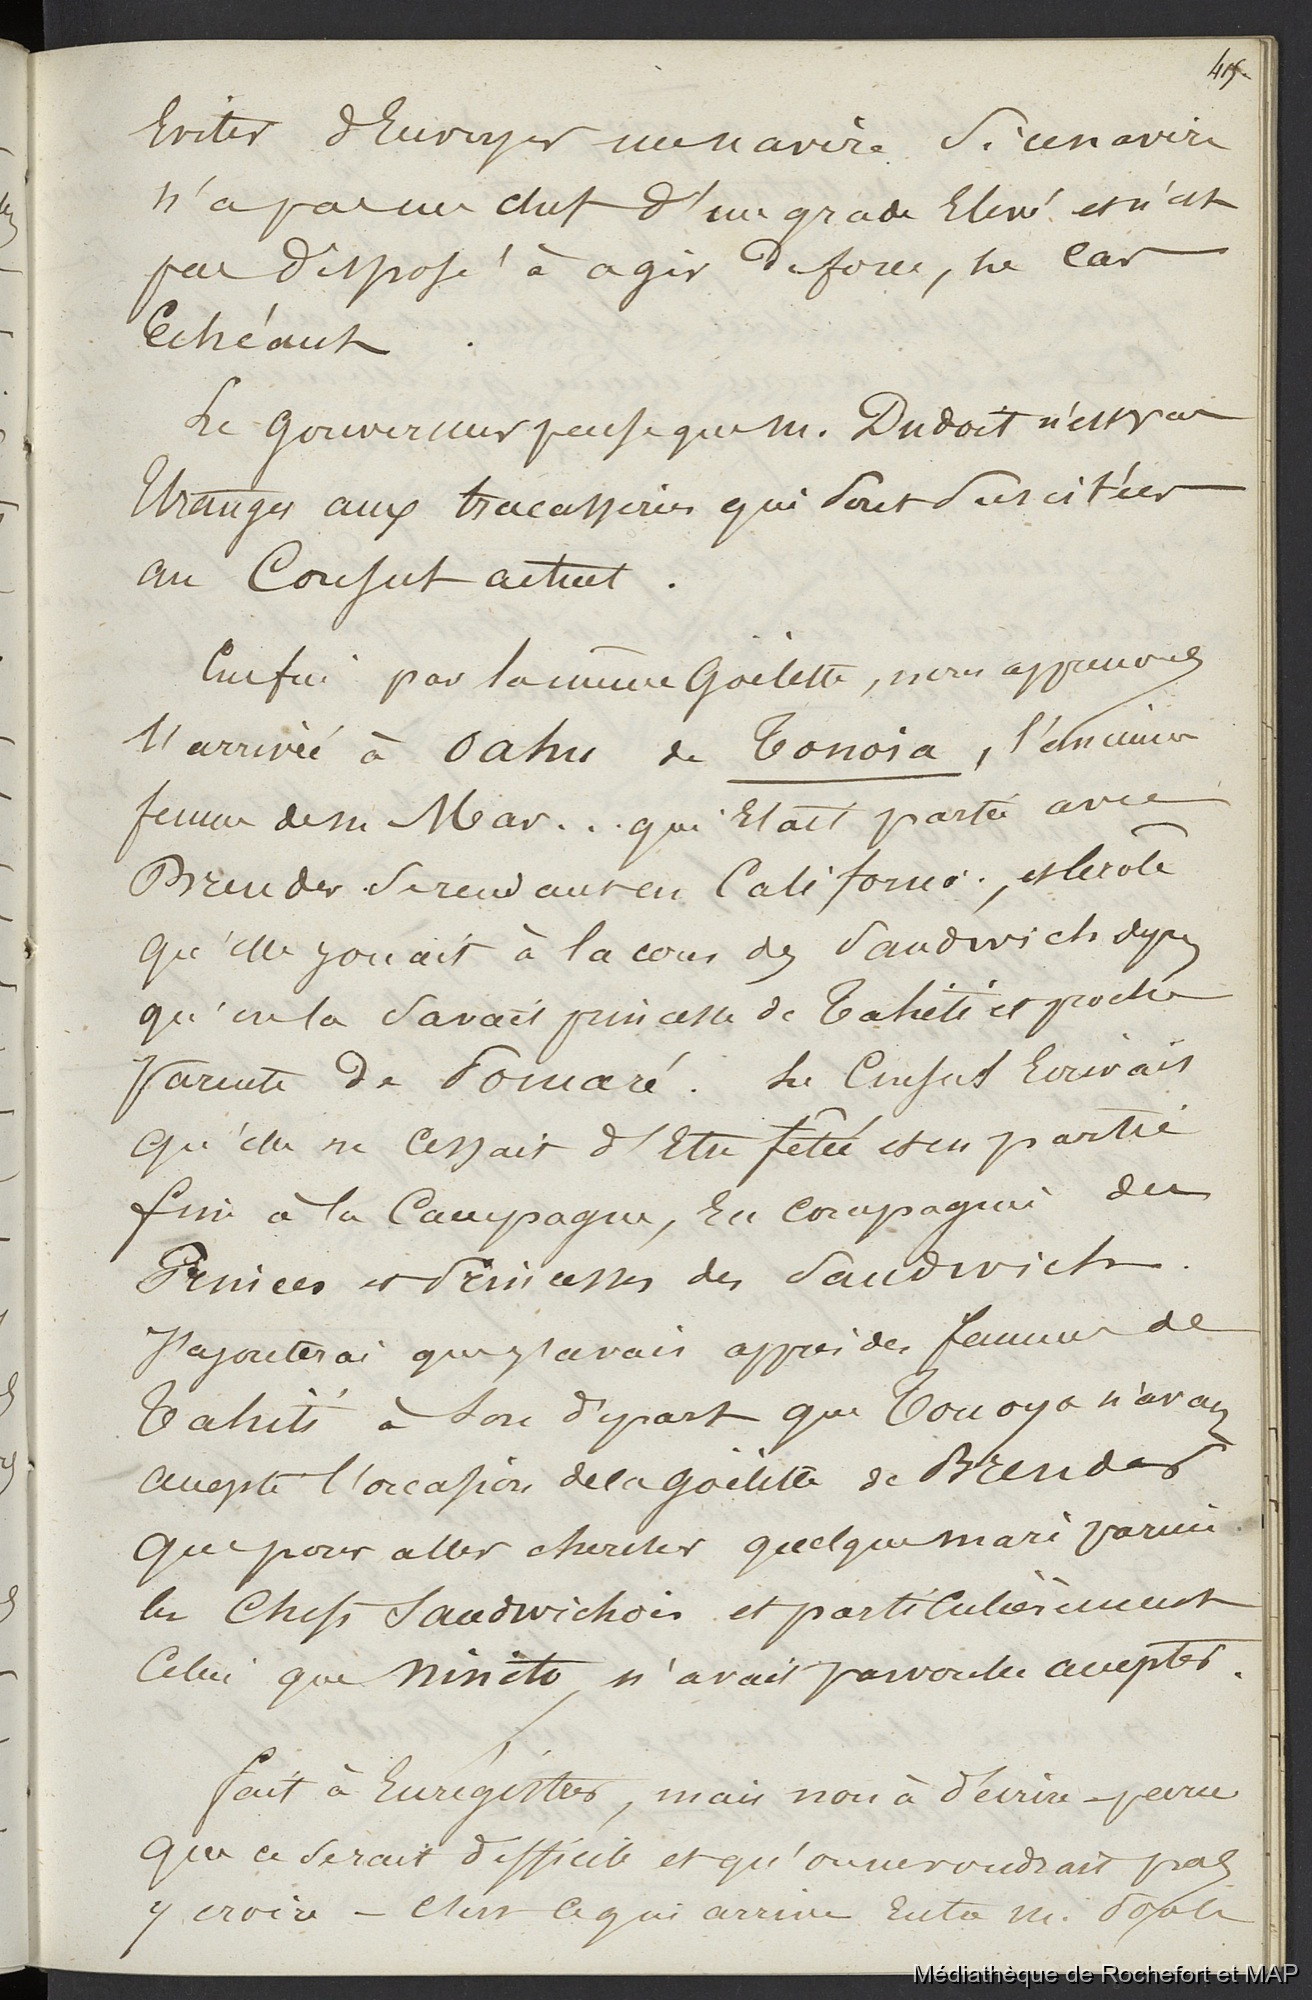 415.
Eviter d'Envoyer un navire si ce navire
n'a pas un chef d'un grade Elevé et n'est
pas disposé à agir de force, le cas
Echéant.
Le Gouverneur pense que M. Dudoit n'est pas
Etranger aux tracasseries qui sont suscitées
au Consul actuel.
Enfin par la même Goëlette, nous apprenons
l'arrivée à Oahu de Tonoia, l'ancienne
femme de M. Mar... qui Etait partie avec
Brender se rendant en Californie., et le rôle
qu'elle jouait à la cour des Sandwich depuis
qu'on la savait princesse de Tahiti et proche
parente de Pomaré. Le Consul Ecrivait
qu'elle ne Cessait d'Etre fêtée et en partie
fine à la Campagne, En compagnie des
Princes et Princesses des Sandwich.
J'ajouterai que j'avais appris des femmes de
Tahiti à son départ que Tonoya n'avait
accepté l'occasion de la goëlette de Brender
que pour aller chercher quelque mari parmi
les Chefs Sandwichois et particulièrement
Celui que Ninito n'avait pas voulu accepter.
Fait à Enregistrer, mais non à décrire - parce
que ce serait difficile et qu'on ne voudrait pas
y croire - c'est ce qui arrive Entre M.
Médiathèque de Rochefort et MAP